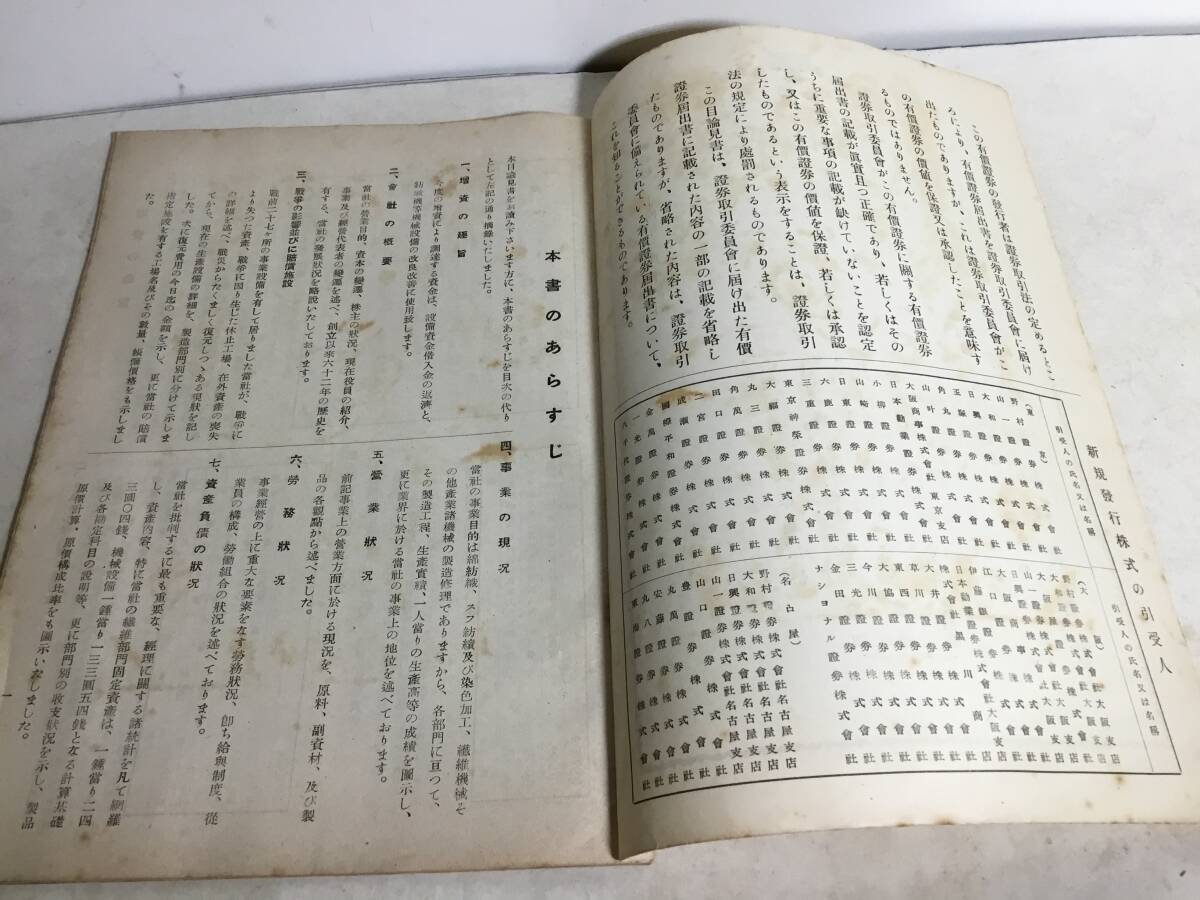 この有價證券の發行者は證券取引法の定めるとこ
ろにより、有價證券届出書を證券取引委員會に届け
出たものでありますが、これは證券取引委員會がこ
の有價證券の價値を保證又は承認したことを意味す
るものではありません。
證券取引委員會がこの有價證券に關する有價證券
届出書の記載が眞實且つ正確であり、若しくはその
うちに重要な事項の記載が缺けていないことを認定
し、又はこの有價證券の價値を保證、若しくは承認
したものであるという表示をすることは、證券取引
法の規定により處罰されるものであります。
この目論見書は、證券取引委員會に届け出た有價
證券届出書に記載された内容の一部の記載を省略し
たものでありますが、省略された内容は、證券取引
委員會に備えられている有價證券届出書について、
これを知ることができるものであります。
新規發行株式の引受人
引受人の氏名又は名稱
引受人の氏名又は名稱
(東京)
野村證券株式會社
山一證券株式會社
大和證券株式會社
日興證券株式會社
玉塚證券株式會社
角丸證券株式會社
山叶證券株式會社
大阪商事株式會社東京支店
日本勸業證券株式會社
小柳證券株式會社
山崎證券株式會社
日東證券株式會社
六鹿證券株式會社
三重證券株式會社
東京神榮證券株式會社
大福證券株式會社
丸三證券株式會社
角萬證券株式會社
田口證券株式會社
二宮證券株式會社
成瀬證券株式會社
金萬證券株式會社
一光證券株式會社
八千代證券株式會社
(大阪)
野村證券株式會社大阪支店
大和證券株式會社大阪支店
山一證券株式會社大阪支店
日興證券株式會社大阪支店
大阪商事株式會社
江口證券株式會社
日本勸業證券株式會社大阪支店
株式會社黑川商店
大井證券株式會社
草川證券株式會社
東西證券株式會社
大協證券株式會社
今川證券株式會社
三光證券株式會社
金田證券株式會社
ナシヨナル證券株式會社
(名古屋)
野村證券株式會社名古屋支店
大和證券株式會社名古屋支店
日興證券株式會社名古屋支店
山一證券株式會社名古屋支店
山口證券株式會社
豊證券株式會社
丸萬證券株式會社
安藤證券株式會社
丸八證券株式會社
東海證券株式會社
本書のあらすじ
本目論見書をお讀み下さいます方に、本書のあらすじを目次の代り
として左記の通り摘錄いたしました。
一、增資の趣旨
今度の增資により調達する資金は、設備資金借入金の返濟と、
紡績機等機械設備の改良改善に使用致します。
二、會社の概要
當社の營業目的、資本の變遷、株主の狀況、現在役員の紹介、
事業及び經營代表者の變遷を述べ、創立以來六十二年の歴史を
有する、當社の發展狀況を略說いたしております。
三、戰爭の影響並びに賠償施設
戰前二十七ヶ所の事業設備を有して居りました當社が、戰爭に
より失つた資産、戰爭に因り生じた休止工場、在外資産の喪失
の詳細を述べ、戰災からたくましく復元しつゝある現狀を記し
てから、現在の生産設備の詳細を、製造部門別に分けて示しま
した。次に復元費用の今日迄の金額を示し、更に當社の賠償
指定施設を有する工場名及びその數量、帳簿價格をも示しまし
た。
四、事業の現況
當社の事業目的は綿紡織、スフ紡績及び染色加工、纖維機械そ
の他産業諸機械の製造修理でありますから、各部門に亘つて、
その製造工程、生産實績、一人當りの生産高等の成績を圖示し、
更に業界に於ける當社の事業上の地位を述べております。
五、營業狀況
前記事業上の營業方面に於ける現況を、原料、副資材、及び製
品の各觀點から述べました。
六、勞務狀況
事業經營の上に重大な要素をなす勞務狀況、卽ち給與制度、從
業員の構成、勞働組合の狀況を述べております。
七、資産負債の狀況
當社を批判するに最も重要な、經理に關する諸統計を凡て網羅
し、資産内容、特に當社の纖維部門固定資産は、一錘當り二四
三圓〇四錢、機械設備一錘當り一三三圓五四錢となる計算基礎
及び各勘定科目の說明等、更に部門別の收支狀況を示し、製品
原價計算・原價構成比率をも圖示いたしました。
一